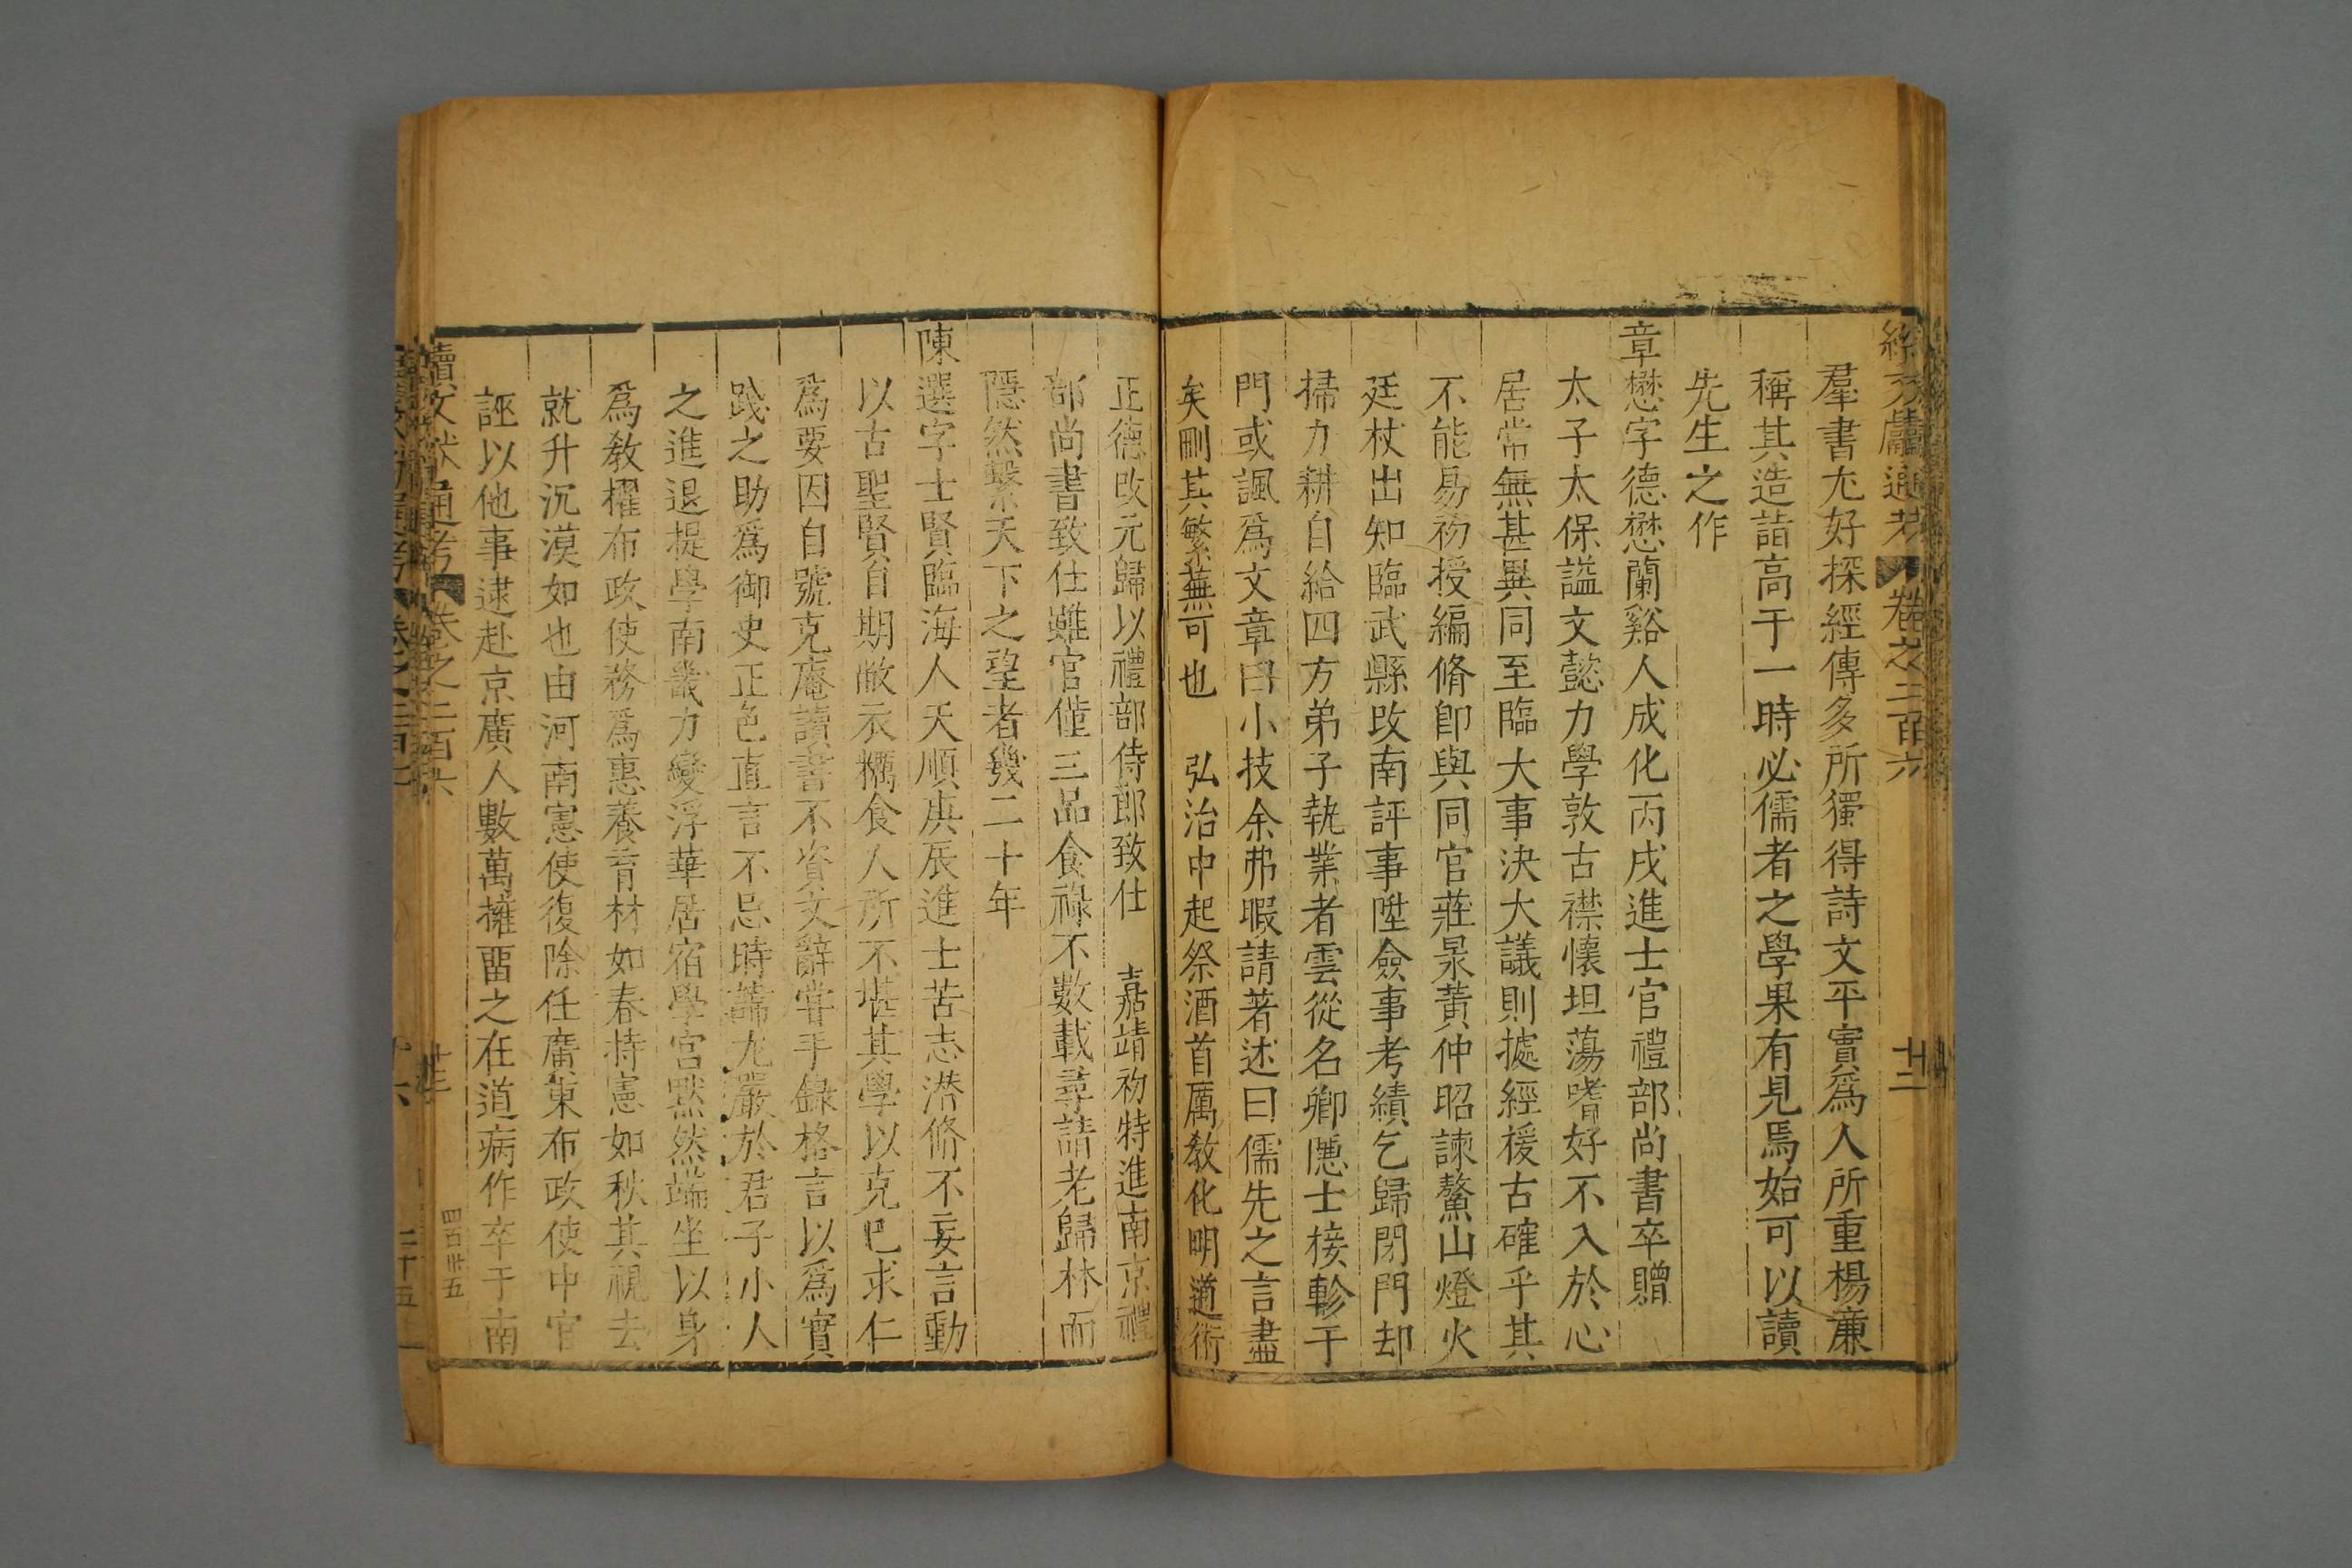 羣書尤好探經傳多所獨得詩文平實爲人所重楊廉
稱其造詣高于一時必儒者之學果有見焉始可以讀
先生之作
章懋字德懋蘭谿人成化丙戌進士官禮部尚書卒贈
太子太保謚文懿力學敦古襟懷坦蕩嗜好不入於心
居常無甚異同至臨大事決大議則據經援古確乎其
不能易初授編脩卽與同官莊㫤黃仲昭諫鰲山燈火
廷杖出知臨武縣改南評事陞僉事考績乞歸閉門却
掃力耕自給四方弟子執業者雲從名卿隱士接軫于
門或諷爲文章曰小技余弗暇請著述曰儒先之言盡
矣刪其繁蕪可也 弘治中起祭酒首厲教化明道術
正德改元歸以禮部侍郎致仕 嘉靖初特進南京禮
部尚書致仕雖官僅三品食祿不數載尋請老歸林而
隱然繫天下之望者幾二十年
陳選字士賢臨海人天順庚辰進士苦志潜脩不妄言動
以古聖賢自期敝衣糲食人所不堪其學以克己求仁
爲要因自號克庵讀書不資文辭嘗手錄格言以爲實
踐之助爲御史正色直言不忌時諱尤嚴於君子小人
之進退提學南畿力變浮華居宿學宮默然端坐以身
爲教擢布政使務爲惠養育材如春持憲如秋其視去
就升沉漠如也由河南憲使復除任廣東布政使中官
誣以他事逮赴京廣人數萬擁畱之在道病作卒于南
續文獻通考 卷之二百六